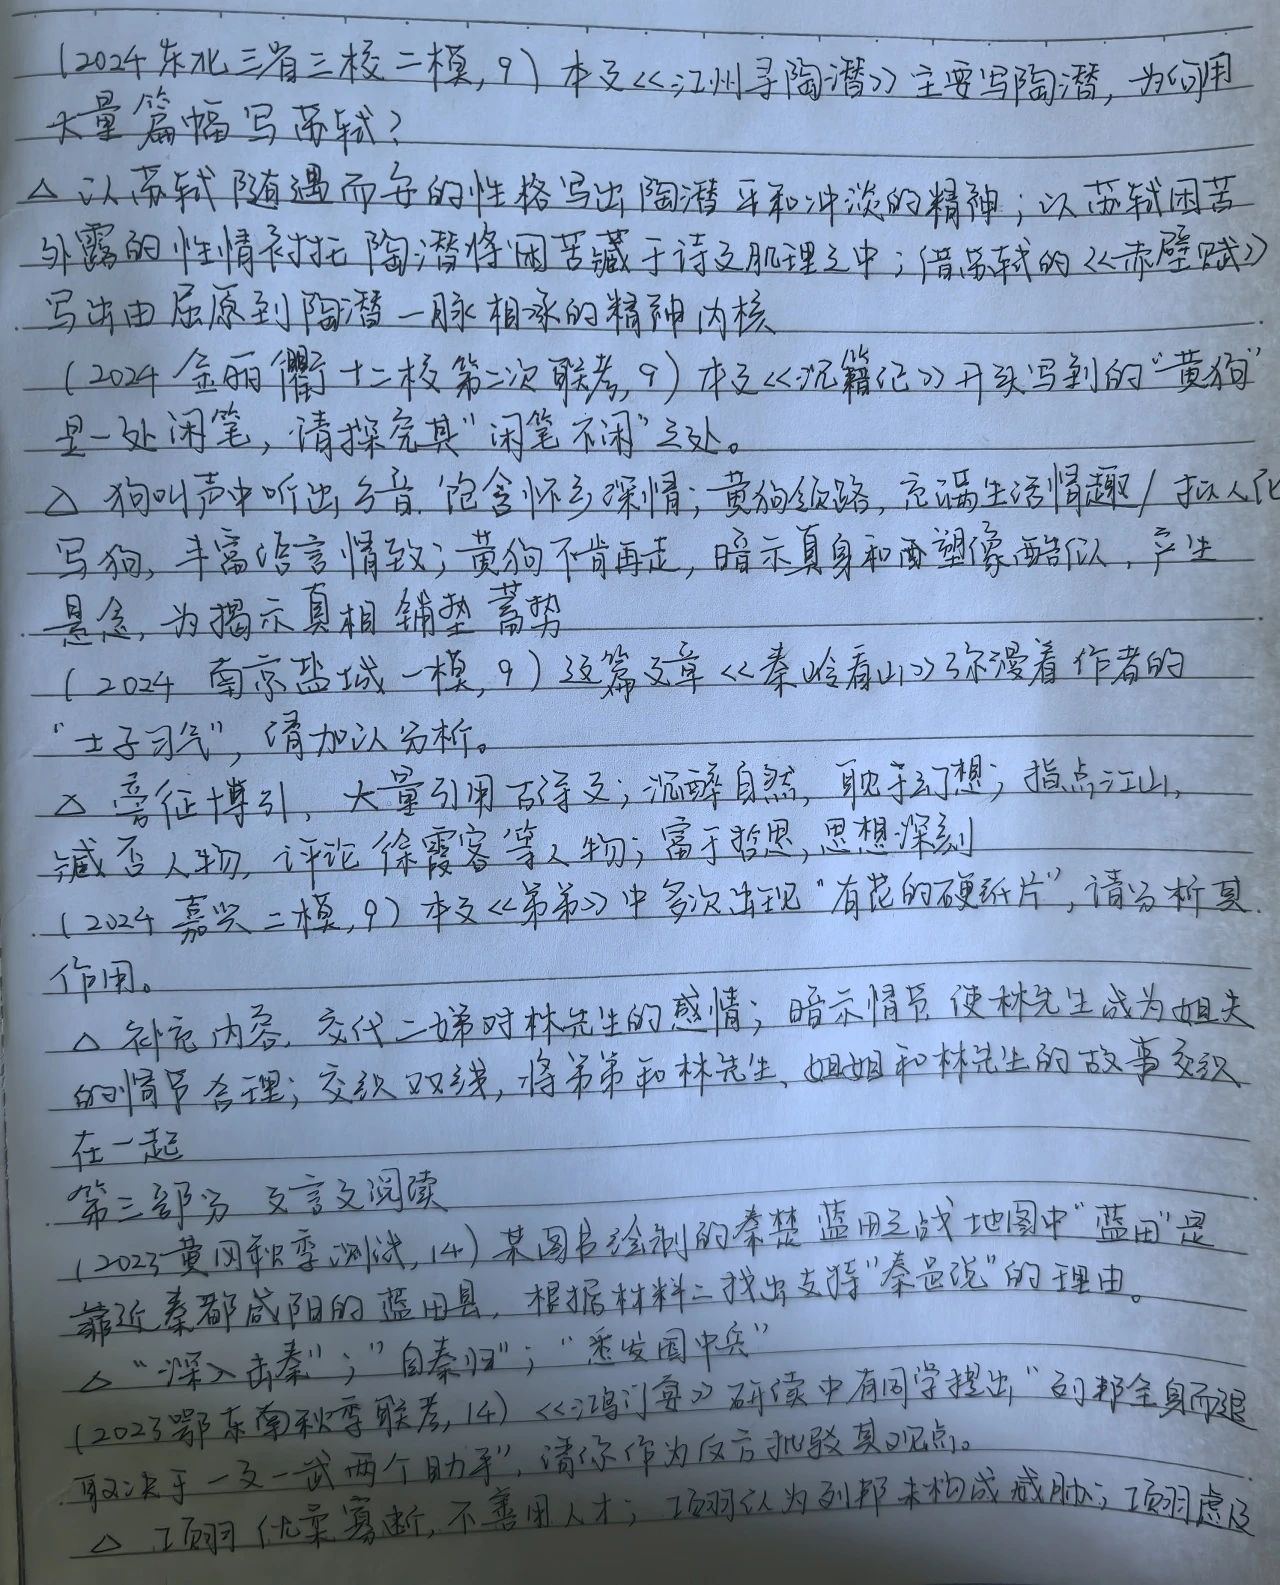 (2024东北三省三校二模,9)本文《江州寻陶潜》主要写陶潜,为何用
大量篇幅写苏轼?
△ 以苏轼随遇而安的性格写出陶潜平和冲淡的精神;以苏轼困苦
外露的性情衬托陶潜将困苦藏于诗文肌理之中;借苏轼的《赤壁赋》
写出由屈原到陶潜一脉相承的精神内核
(2024金丽衢十二校第二次联考,9)本文《沉籍记》开头写到的“黄狗”
是一处闲笔,请探究其“闲笔不闲”之处。
△ 狗叫声中听出乡音,饱含怀乡深情;黄狗纹路,充满生活情趣/拟人化
写狗,丰富语言情致;黄狗不肯再走,暗示真身和西塑像酷似,产生
悬念,为揭示真相铺垫蓄势
(2024南京盐城一模,9)这篇文章《秦岭看山》弥漫着作者的
“士子习气”,请加以分析。
△ 旁征博引,大量引用古诗文;沉醉自然,耽于幻想;指点江山,
臧否人物,评论徐霞客等人物;富于哲思,思想深刻
(2024嘉兴二模,9)本文《弟弟》中多次出现“有花的硬纸片”,请分析其
作用。
△ 补充内容,交代二姊对林先生的感情;暗示情节,使林先生成为姐夫
的情节合理;交织双线,将弟弟和林先生、姐姐和林先生的故事交织
在一起
第三部分 文言文阅读
(2023黄冈秋季测试,14)某图书绘制的秦楚蓝田之战地图中“蓝田”是
靠近秦都咸阳的蓝田县,根据材料二找出支持“秦邑说”的理由。
△ “深入击秦”;“自秦归”;“悉发国中兵”
(2023鄂东南秋季联考,14)《鸿门宴》研读中有同学提出“刘邦全身而退
取决于一文一武两个助手”,请你作为反方批驳其观点。
△ 项羽优柔寡断,不善用人才;项羽认为刘邦未构成威胁;项羽虑及